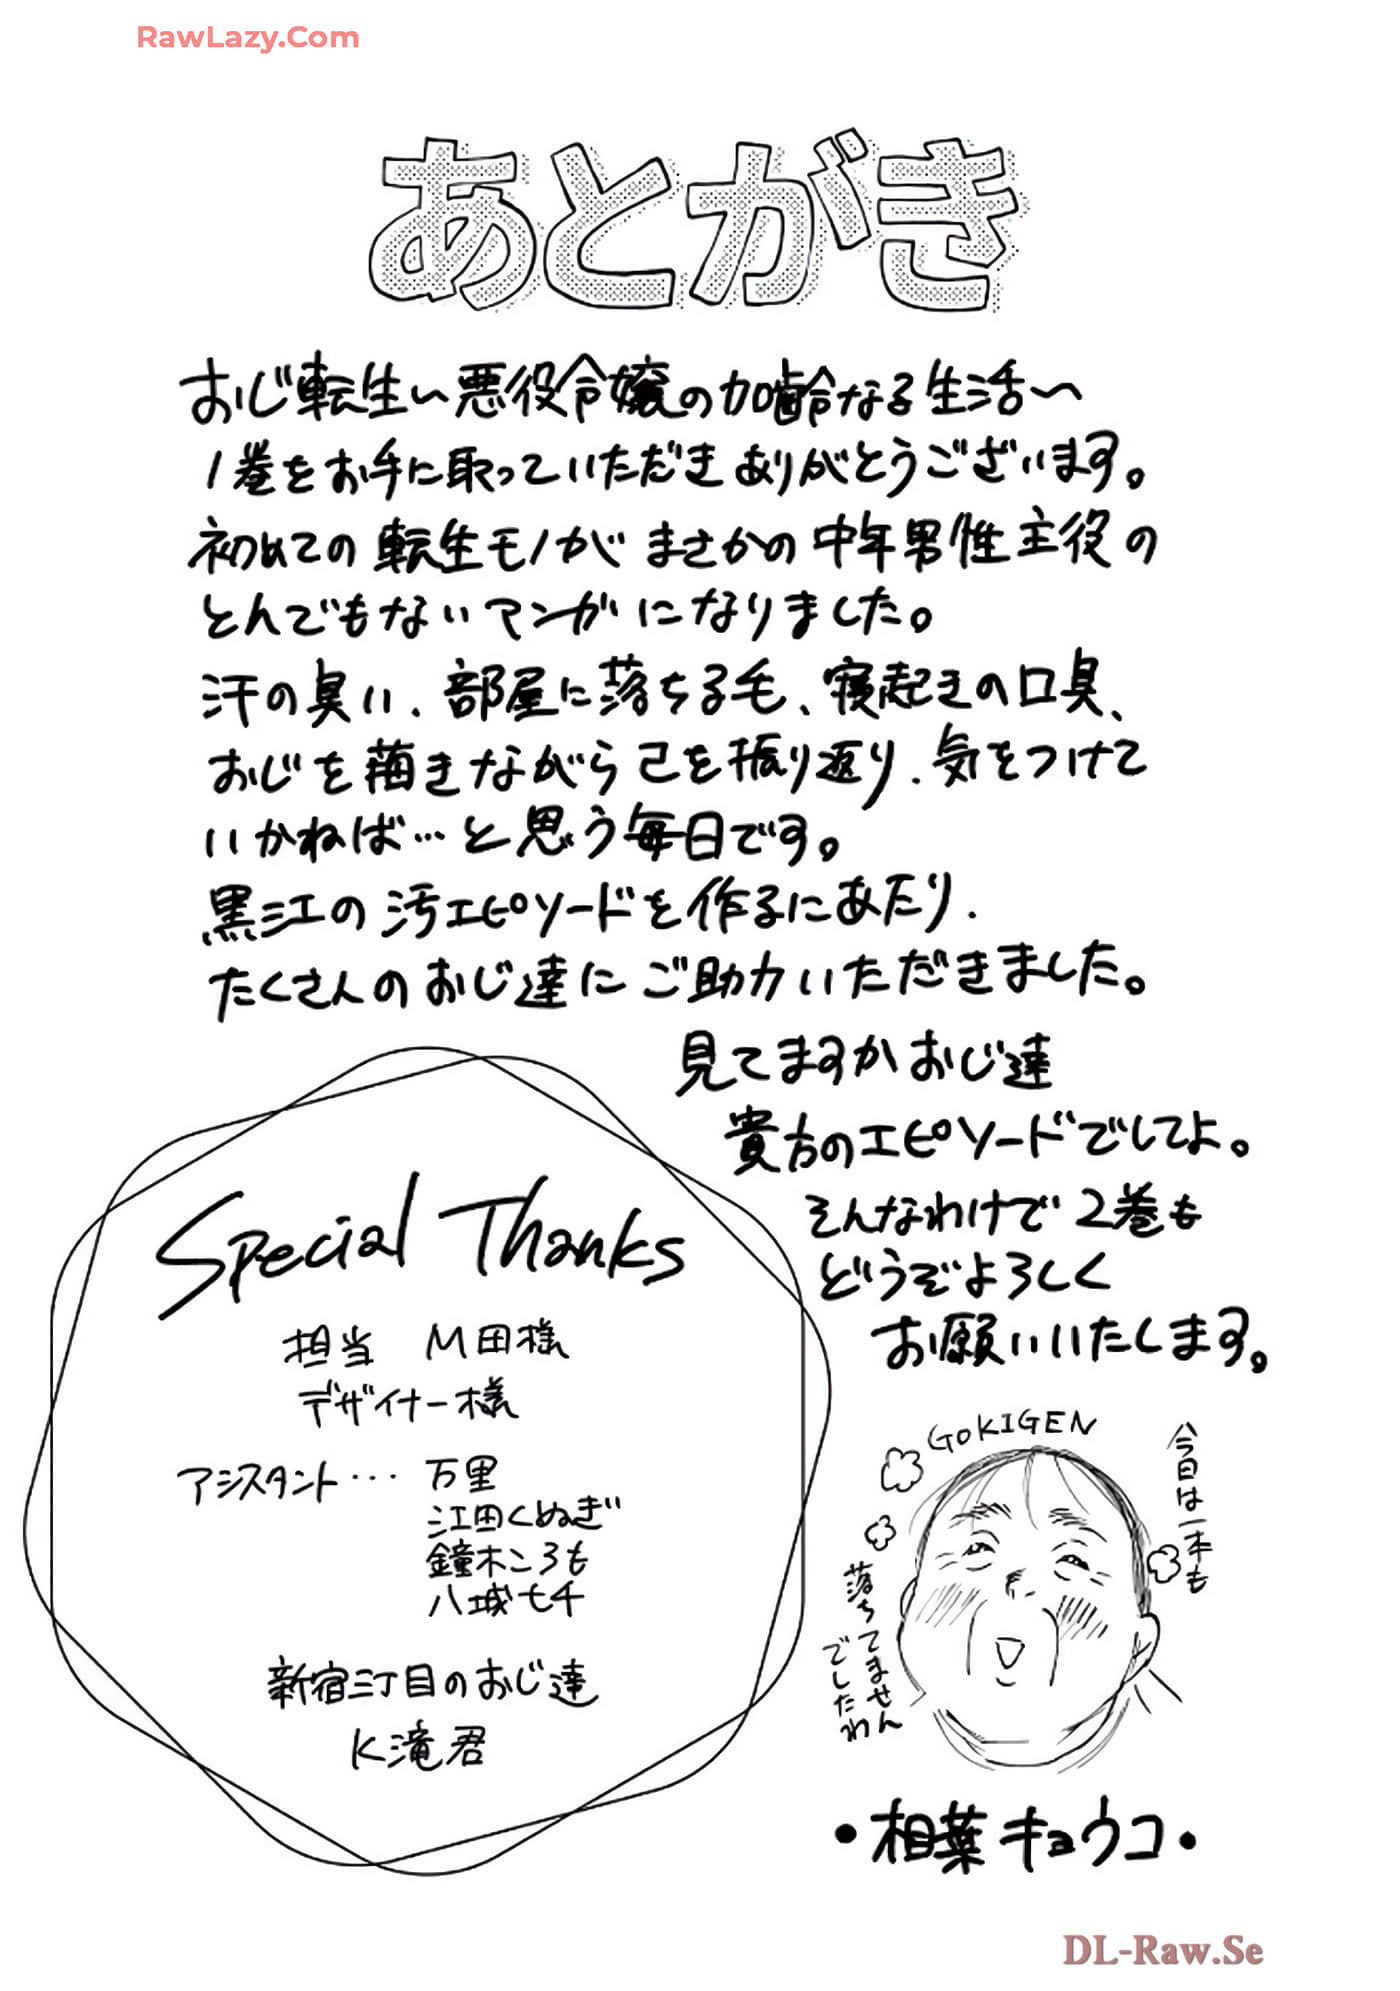 RawLazy.Com
あとがき
おじ転生〜悪役令嬢の加齢なる生活〜
1巻をお手に取っていただきありがとうございます。
初めての転生モノがまさかの中年男性主役の
とんでもないマンガになりました。
汗の臭い、部屋に落ちる毛、寝起きの口臭、
おじを描きながら己を振り返り、気をつけて
いかねば…と思う毎日です。
黒江の汚エピソードを作るにあたり、
たくさんのおじ達にご助力いただきました。
見てますかおじ達
貴方のエピソードでしてよ。
そんなわけで2巻も
どうぞよろしく
お願いいたします。
Special Thanks
担当 M田様
デザイナー様
アシスタント… 万里
江田くぬぎ
鐘木ころも
八城七千
新宿三丁目のおじ達
K滝君
GOKIGEN
今日は一本も
落ちてません
でしたわ
・相葉キョウコ・
DL-Raw.Se